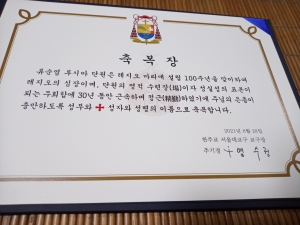 축 복 장
류순열 루시아 단원은 레지오 마리애 설립 100주년을 맞이하여
레지오의 심장이며, 단원의 영적 수련장(場)이자 성실성의 표본이
되는 주회합에 30년 동안 근속하며 정근(精勤)하였기에 주님의 은총이
충만하도록 성부와 성자와 성령의 이름으로 축복합니다.
2021년 9월
천주교 서울대교구 교구장
추기경